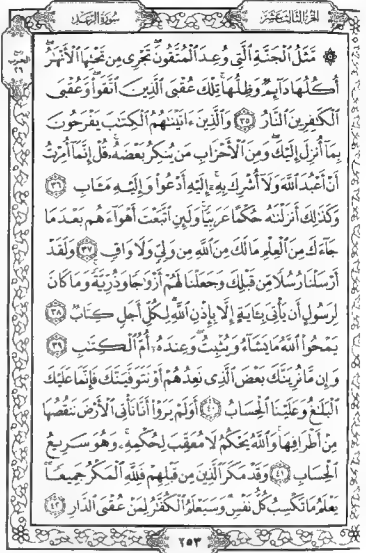 سُورَةُ الرَّعْدِ
الجُزْءُ الثَّالِثَ عَشَرَ
۞ مَّثَلُ ٱلْجَنَّةِ ٱلَّتِى وُعِدَ ٱلْمُتَّقُونَ ۖ تَجْرِى مِن تَحْتِهَا ٱلْأَنْهَٰرُ ۖ
أُكُلُهَا دَآئِمٌ وَظِلُّهَا ۚ تِلْكَ عُقْبَى ٱلَّذِينَ ٱتَّقَوا۟ ۖ وَّعُقْبَى
ٱلْكَٰفِرِينَ ٱلنَّارُ ٣٥ وَٱلَّذِينَ ءَاتَيْنَٰهُمُ ٱلْكِتَٰبَ يَفْرَحُونَ
بِمَآ أُنزِلَ إِلَيْكَ ۖ وَمِنَ ٱلْأَحْزَابِ مَن يُنكِرُ بَعْضَهُۥ ۚ قُلْ إِنَّمَآ أُمِرْتُ
أَنْ أَعْبُدَ ٱللَّهَ وَلَآ أُشْرِكَ بِهِۦٓ ۚ إِلَيْهِ أَدْعُوا۟ وَإِلَيْهِ مَـَٔابِ ٣٦
وَكَذَٰلِكَ أَنزَلْنَٰهُ حُكْمًا عَرَبِيًّا ۚ وَلَئِنِ ٱتَّبَعْتَ أَهْوَآءَهُم بَعْدَ مَا
جَآءَكَ مِنَ ٱلْعِلْمِ مَا لَكَ مِنَ ٱللَّهِ مِن وَلِىٍّ وَلَا وَاقٍ ٣٧ وَلَقَدْ
أَرْسَلْنَا رُسُلًا مِّن قَبْلِكَ وَجَعَلْنَا لَهُمْ أَزْوَٰجًا وَذُرِّيَّةً ۚ وَمَا كَانَ
لِرَسُولٍ أَن يَأْتِىَ بِـَٔايَةٍ إِلَّا بِإِذْنِ ٱللَّهِ ۗ لِكُلِّ أَجَلٍ كِتَابٌ ٣٨
يَمْحُوا۟ ٱللَّهُ مَا يَشَآءُ وَيُثْبِتُ ۖ وَعِندَهُۥٓ أُمُّ ٱلْكِتَٰبِ ٣٩
وَإِن مَّا نُرِيَنَّكَ بَعْضَ ٱلَّذِى نَعِدُهُمْ أَوْ نَتَوَفَّيَنَّكَ فَإِنَّمَا عَلَيْكَ
ٱلْبَلَٰغُ وَعَلَيْنَا ٱلْحِسَابُ ٤٠ أَوَلَمْ يَرَوْا۟ أَنَّا نَأْتِى ٱلْأَرْضَ نَنقُصُهَا
مِنْ أَطْرَافِهَا ۚ وَٱللَّهُ يَحْكُمُ لَا مُعَقِّبَ لِحُكْمِهِۦ ۚ وَهُوَ سَرِيعُ
ٱلْحِسَابِ ٤١ وَقَدْ مَكَرَ ٱلَّذِينَ مِن قَبْلِهِمْ فَلِلَّهِ ٱلْمَكْرُ جَمِيعًا ۖ
يَعْلَمُ مَا تَكْسِبُ كُلُّ نَفْسٍ ۗ وَسَيَعْلَمُ ٱلْكُفَّٰرُ لِمَنْ عُقْبَى ٱلدَّارِ ٤٢
٢٥٣